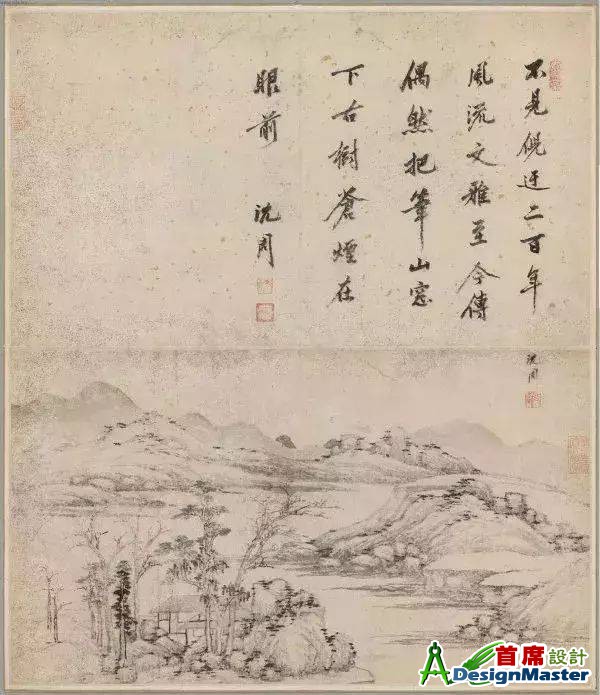 不見倪迂二百年
風流文雅至今傳
偶然把筆山窓
下古樹蒼煙在
眼前 沈周
沈周
首席設計
DesignMaster